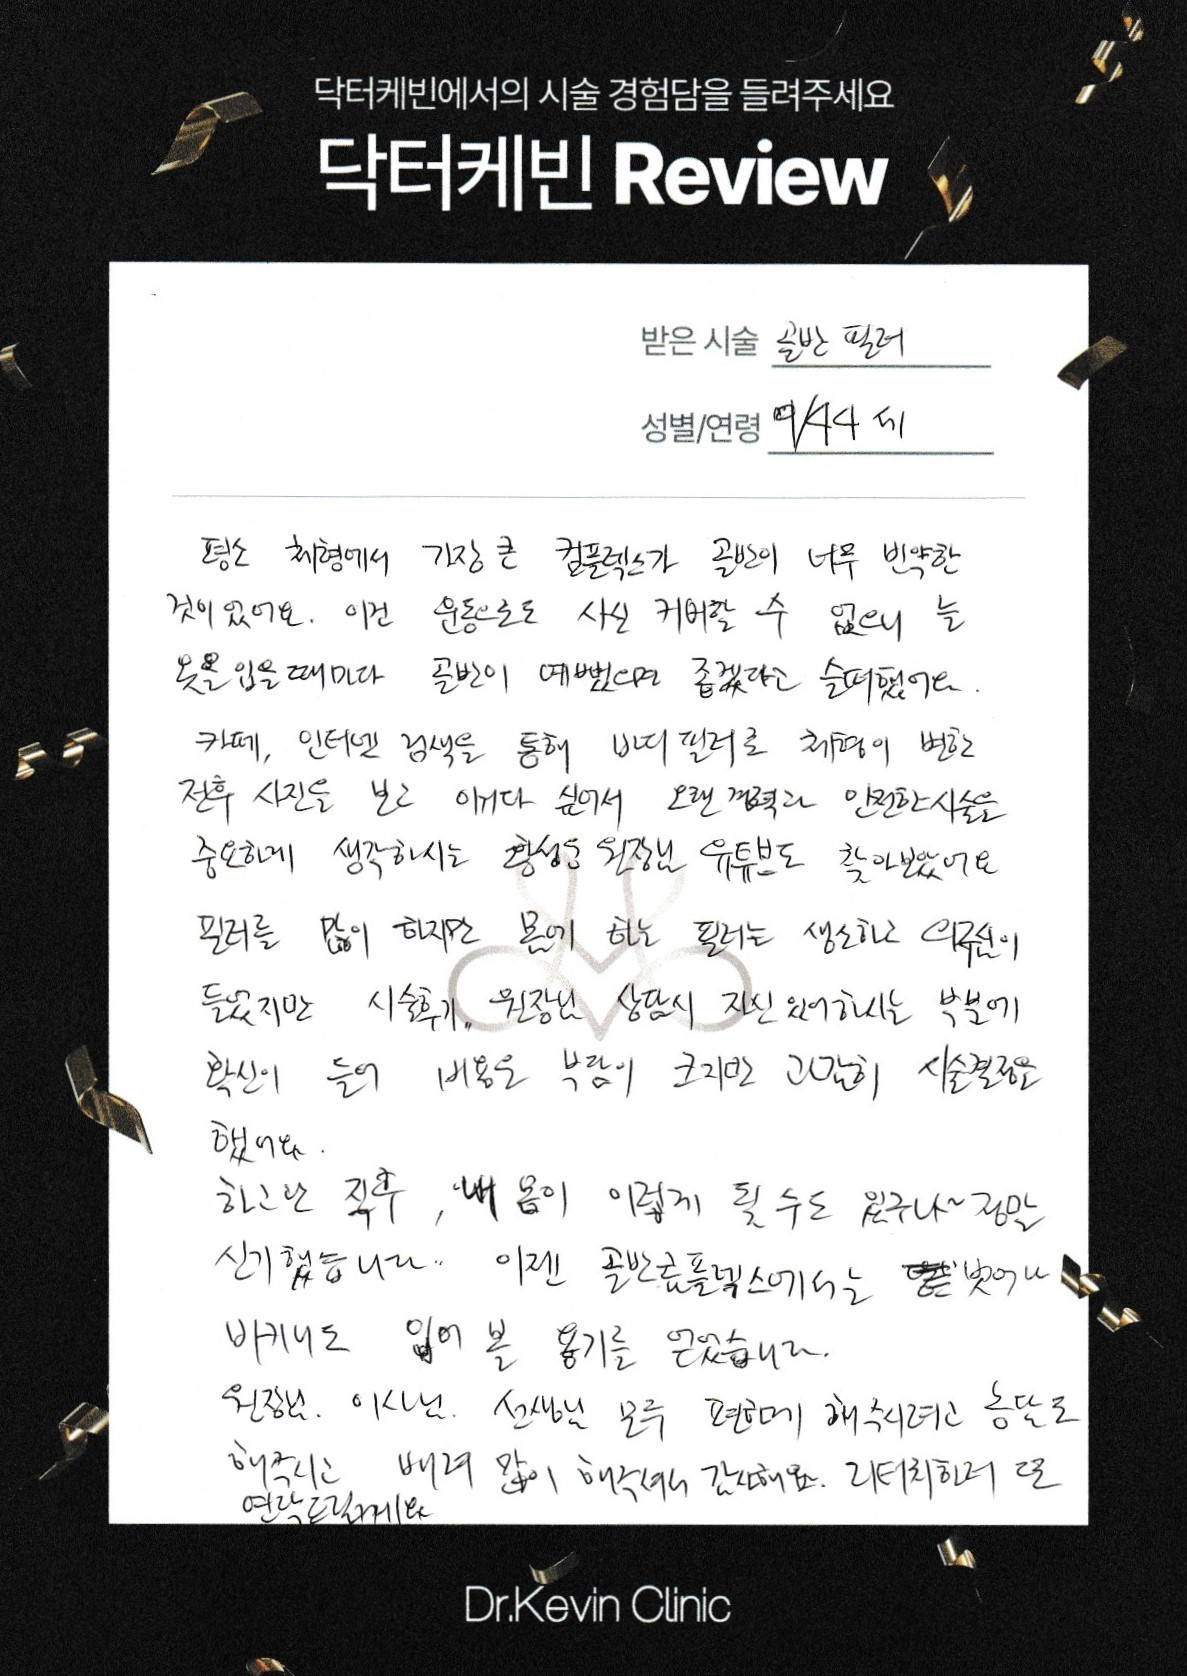 닥터케빈에서의 시술 경험담을 들려주세요
닥터케빈 Review
받은 시술 골반 필러
성별/연령 여/44 세
평소 체형에서 가장 큰 컴플렉스가 골반이 너무 빈약한
것이었어요. 이건 운동으로도 사실 커버할 수 없으니 늘
옷을 입을때마다 골반이 예뻤으면 좋겠다고 슬퍼했어요.
카페, 인터넷 검색을 통해 바디필러로 체형이 변한
전후 사진을 보고 이거다 싶어서 오랜경력과 안전한시술을
중요하게 생각하시는 원장님 유튜브도 찾아보았어요
필러를 많이 하지만 몸에 하는 필러는 생소하고 의구심이
들었지만 시술후기, 원장님 상담시 자신있어하시는 부분에
확신이 들어 비용은 부담이 크지만 과감히 시술결정을
했어요.
하고난 직후, 내 몸이 이렇게 될 수도 있구나~ 정말
신기했습니다.. 이젠 골반컴플렉스에서는 벗어나
비키니도 입어 볼 용기를 얻었습니다.
원장님. 이사님. 선생님 모두 편하게 해주시려고 농담도
해주시고 배려 많이 해주셔서 감사해요. 리터치하러 또
연락드릴게요
Dr.Kevin Clinic